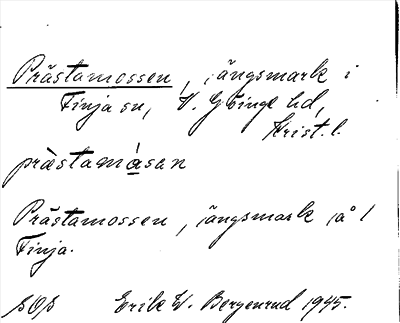 Prästamossen, ängsmark i
Finja sn, V. Göinge hd,
Krist. l.
prästamåsan
Prästamossen, ängsmark på 1
Finja.
SOS Erik W. Bergenrud 1945.